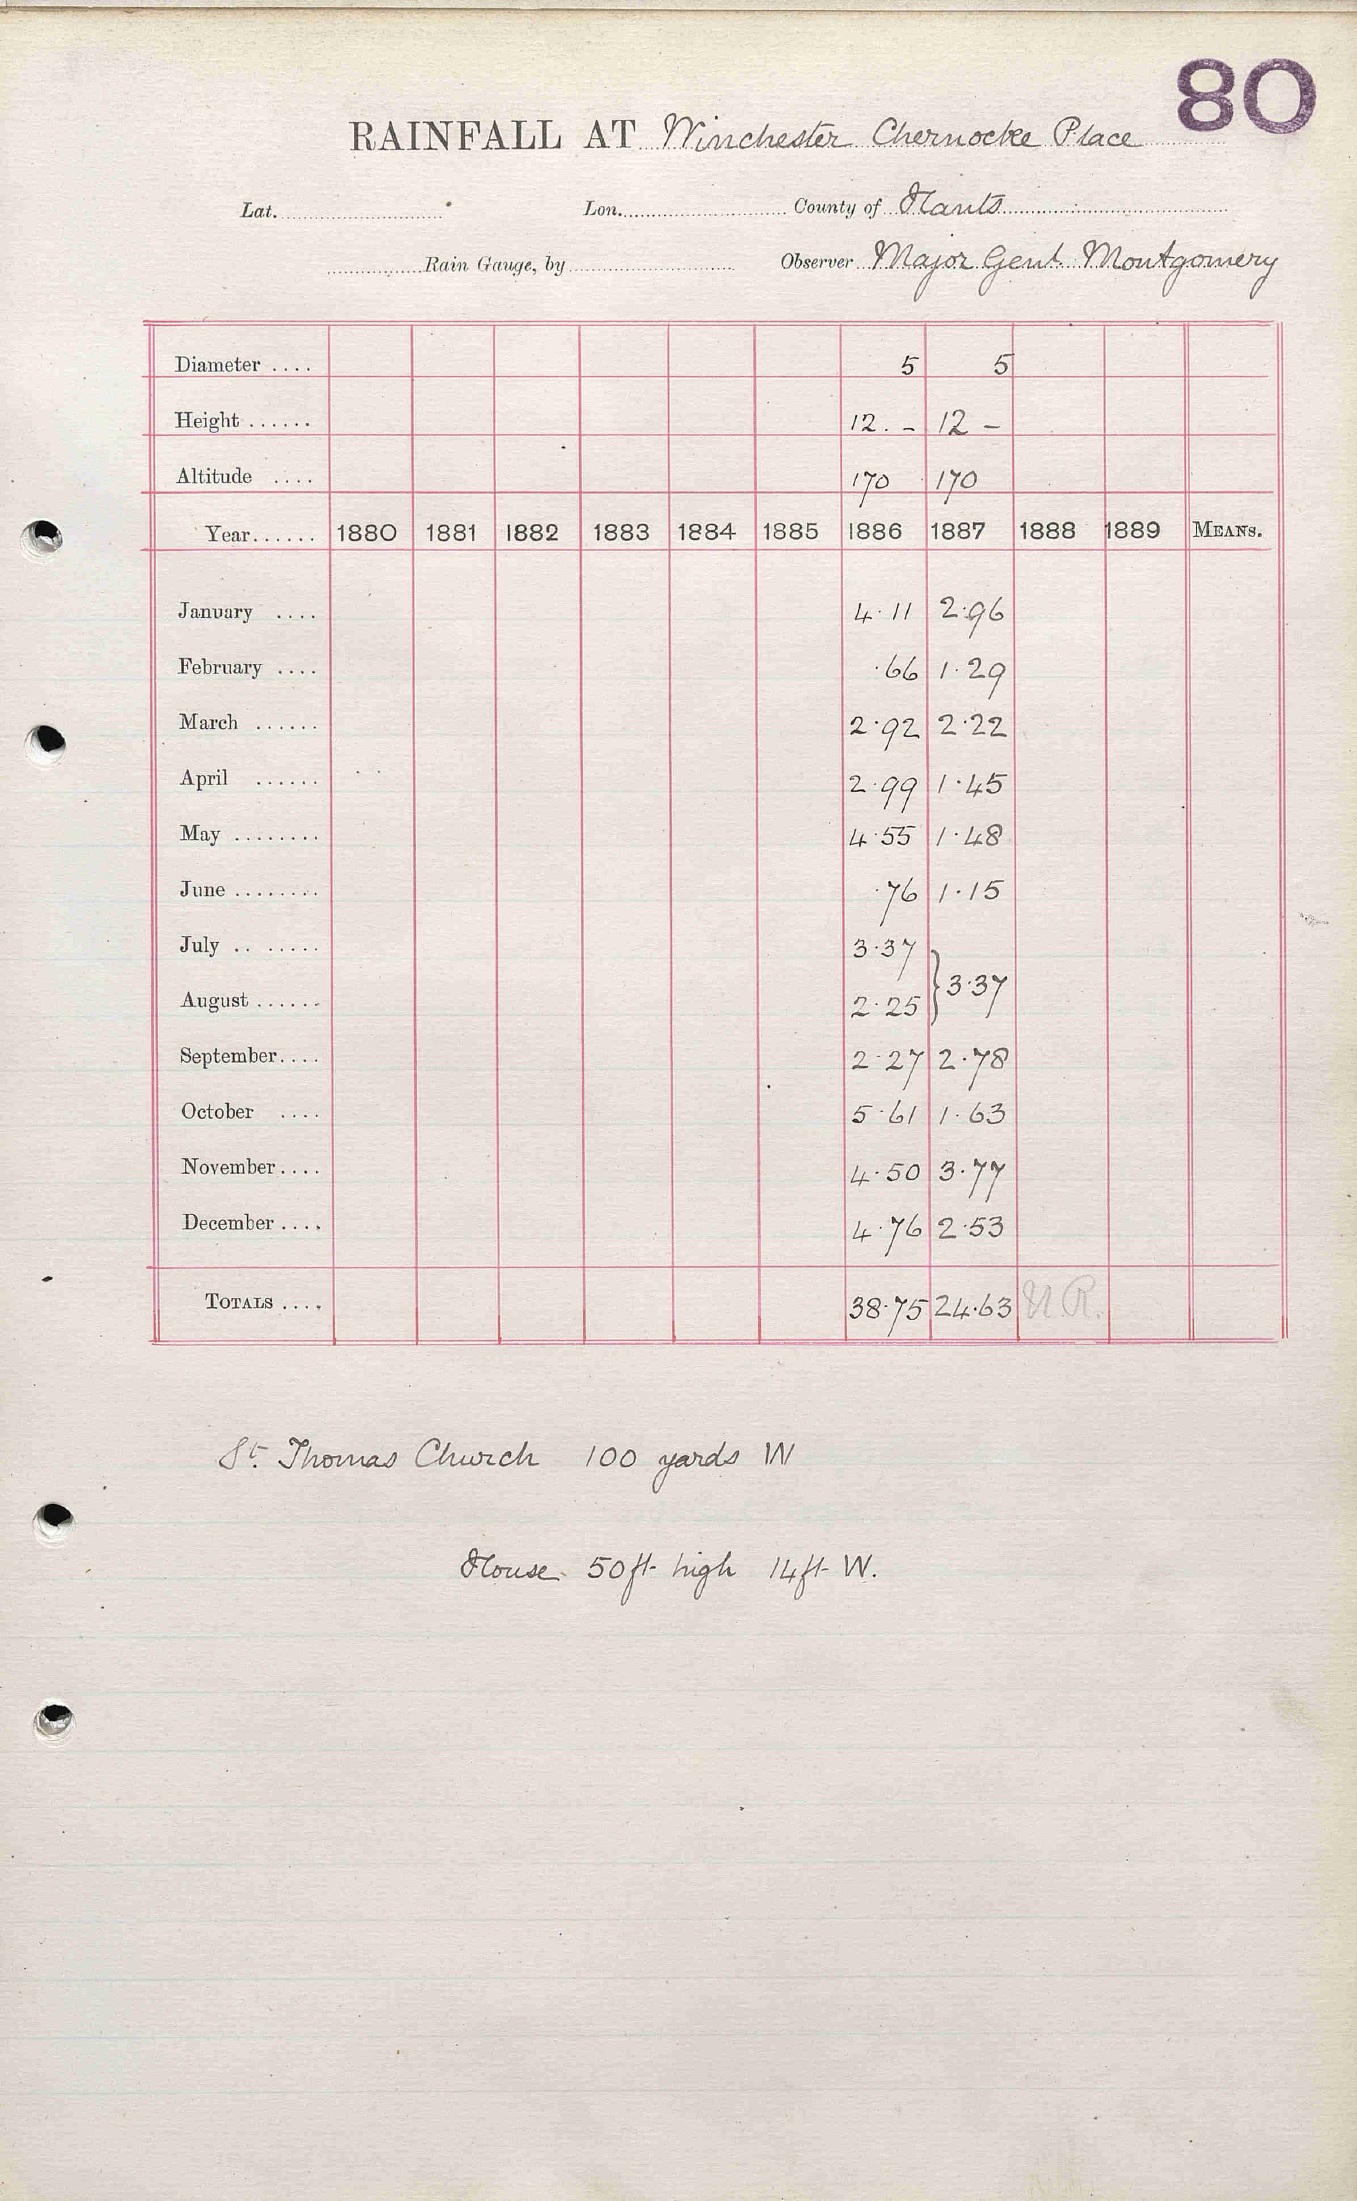 80
RAINFALL AT Winchester Chernocke Place
Lat. Lon. County of Hants
Rain Gauge, by Observer Major Genl. Montgomery
Diameter .... 5 5
Height ...... 12. – 12 –
Altitude .... 170 170
Year...... 1880 1881 1882 1883 1884 1885 1886 1887 1888 1889 MEANS.
January .... 4·11 2·96
February .... ·66 1·29
March ...... 2·92 2·22
April ...... 2·99 1·45
May ........ 4·55 1·48
June ........ ·76 1·15
July .. ...... 3·37
} 3·37
August ...... 2·25
September.... 2·27 2·78
October .... 5·61 1·63
November.... 4·50 3·77
December .... 4·76 2·53
TOTALS .... 38·75 24·63 N.R.
St. Thomas Church 100 yards W
House 50ft high 14ft W.